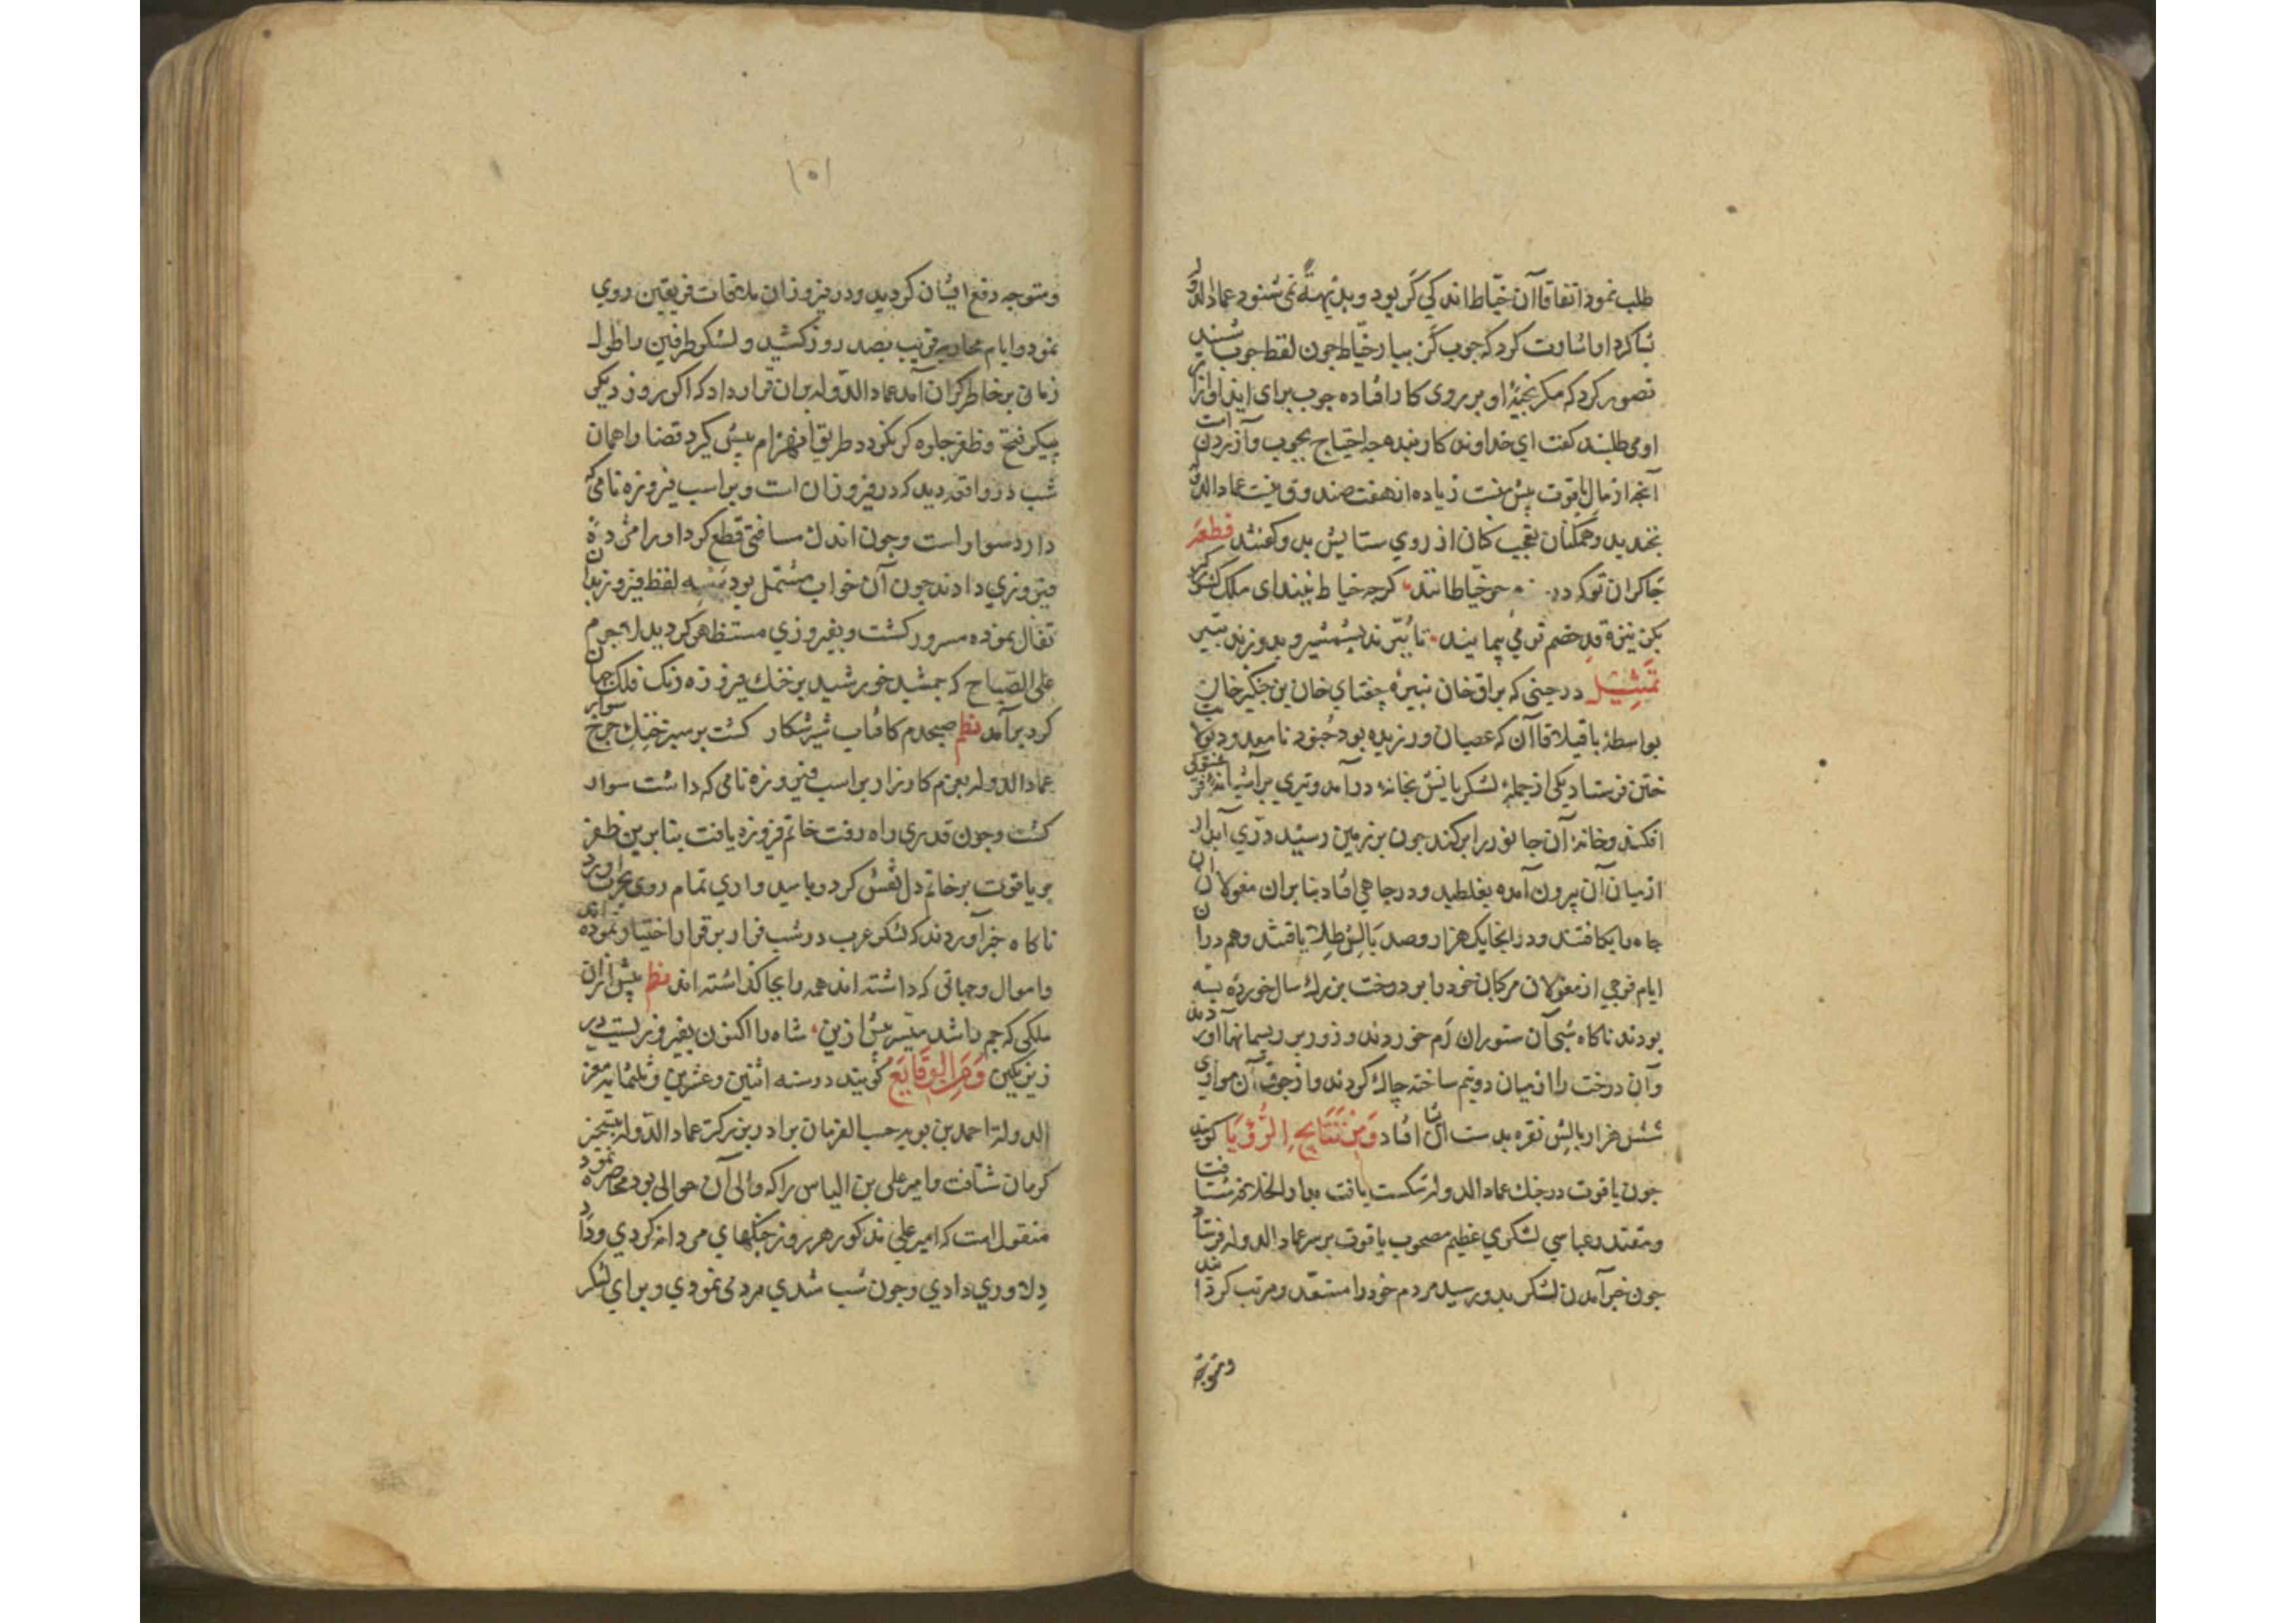 طلب نمود اتفاقا آن خیاط اندکی کر بود و بدین نمی شنود عماد الدوله
بنا کرد اشارت کرد که چوب کز بیار خیاط چون لفظ چوب شنید
تصور کرد که مکر او بر روی کار افتاده چوب برای ایذاء او
او می طلبند کفت ای خداوند کار بنده چه احتیاج بچوب و آزردن است
آنچه از مال یاقوت پیش منست زیاده از هفت صندوق نیست عماد الدوله
بخندید و همکنان تعجب کنان از روی ستایش بدو کفتند قطعه
چاکران تو که در خیاطانند کرچه خیاط نیند ای ملک
بکز نیزه قد خصم تو می پیمایند تا ببرند بشمشیر و بدوزند بتیر
تمثیل در حینی که براق خان نبیره چغتای خان بن چنکیز خان
بواسطه با قاآن که عصیان ورزیده بود جنود نامعدود بولایت
ختن فرستاد یکی از جمله لشکریانش بخانه درآمد و تیری بر آشیانه
افکند و خانه آن جانور را بر کند چون بر زمین رسید دری آبدار
از میان آن بیرون آمده بغلطید و در چاهی افتاد بنابران مغولان آن
چاه را بکافتند و در انجا یک هزار و صد بالش طلا یافتند و هم دران
ایام فوجی از مغولان مرکبان خود را بر درخت بزرک سال خورده بسته
بودند ناکاه شبی آن ستوران رم خوردند و زور بر ریسمانها آوردند
و آن درخت را از میان دو نیم ساخته چاک کردند و از جوف آن موازی
شش هزار بالش نقره بدست ایشان افتاد و من نتایج الرؤیا کویند
چون یاقوت در جنک عماد الدوله شکست یافت بدار الخلافه شتافت
و مقتدر عباسی لشکری عظیم مصحوب یاقوت بر سر عماد الدوله فرستاد
چون خبر آمدن لشکر بدو رسید مردم خود را مستعد و مرتب کردانید
و متوجه
۱۵۱
و متوجه دفع ایشان کردید و در فیروزان ملاقات فریقین روی
نمود و ایام محاربه قریب بصد روز کشید و لشکر طرفین را طول
زمان بر خاطر کران آمد عماد الدوله بران قرار داد که اکر روز دیکر
پیکر فتح و ظفر جلوه کر نکردد طریق انهزام پیش کیرد قضا را همان
شب در واقعه دید که در فیروزان است و بر اسب فیروزه نامی که
دارد سوار است و چون اندک مسافتی قطع کرد او را مژده
فیروزی دادند چون آن خواب مشتمل بود بسه لفظ فیروز بدان
تفال نموده مسرور کشت و بفیروزی مستظهر کردید لاجرم
علی الصباح که جمشید خورشید بر خنک فیروزه رنک فلک جهان
کرد برآمد نظم صبحدم کافتاب شیر شکار کشت بر سبز خنک چرخ سوار
عماد الدوله بعزم کارزار بر اسب فیروزه نامی که داشت سوار
کشت و چون قدری راه رفت خاتم فیروزه یافت بنابرین ظفر
بر یاقوت بر خاتم دل نقش کرد و بامیدواری تمام روی بحرب آورد
ناکاه خبر آوردند که لشکر عرب در شب فرار بر قرار اختیار نموده اند
و اموال و جهاتی که داشته اند همه را بجا کذاشته اند نظم پیش ازان
ملکی که جم را شد میسر پیش ازین شاه را اکنون بفیروزیست دیر
زیر نکین و من الوقایع کویند در سنه اثنین و عشرین و ثلثمایه معز
الدوله احمد بن بویه حسب الفرمان برادر بزرکتر عماد الدوله بتسخیر
کرمان شتافت و امیر علی بن الیاس را که والی آن حوالی بود محاصره نمود
منقول است که امیر علی مذکور هر روز جنکهای مردانه کردی و داد
دلاوری دادی و چون شب شدی مردمی نمودی و برای لشکر